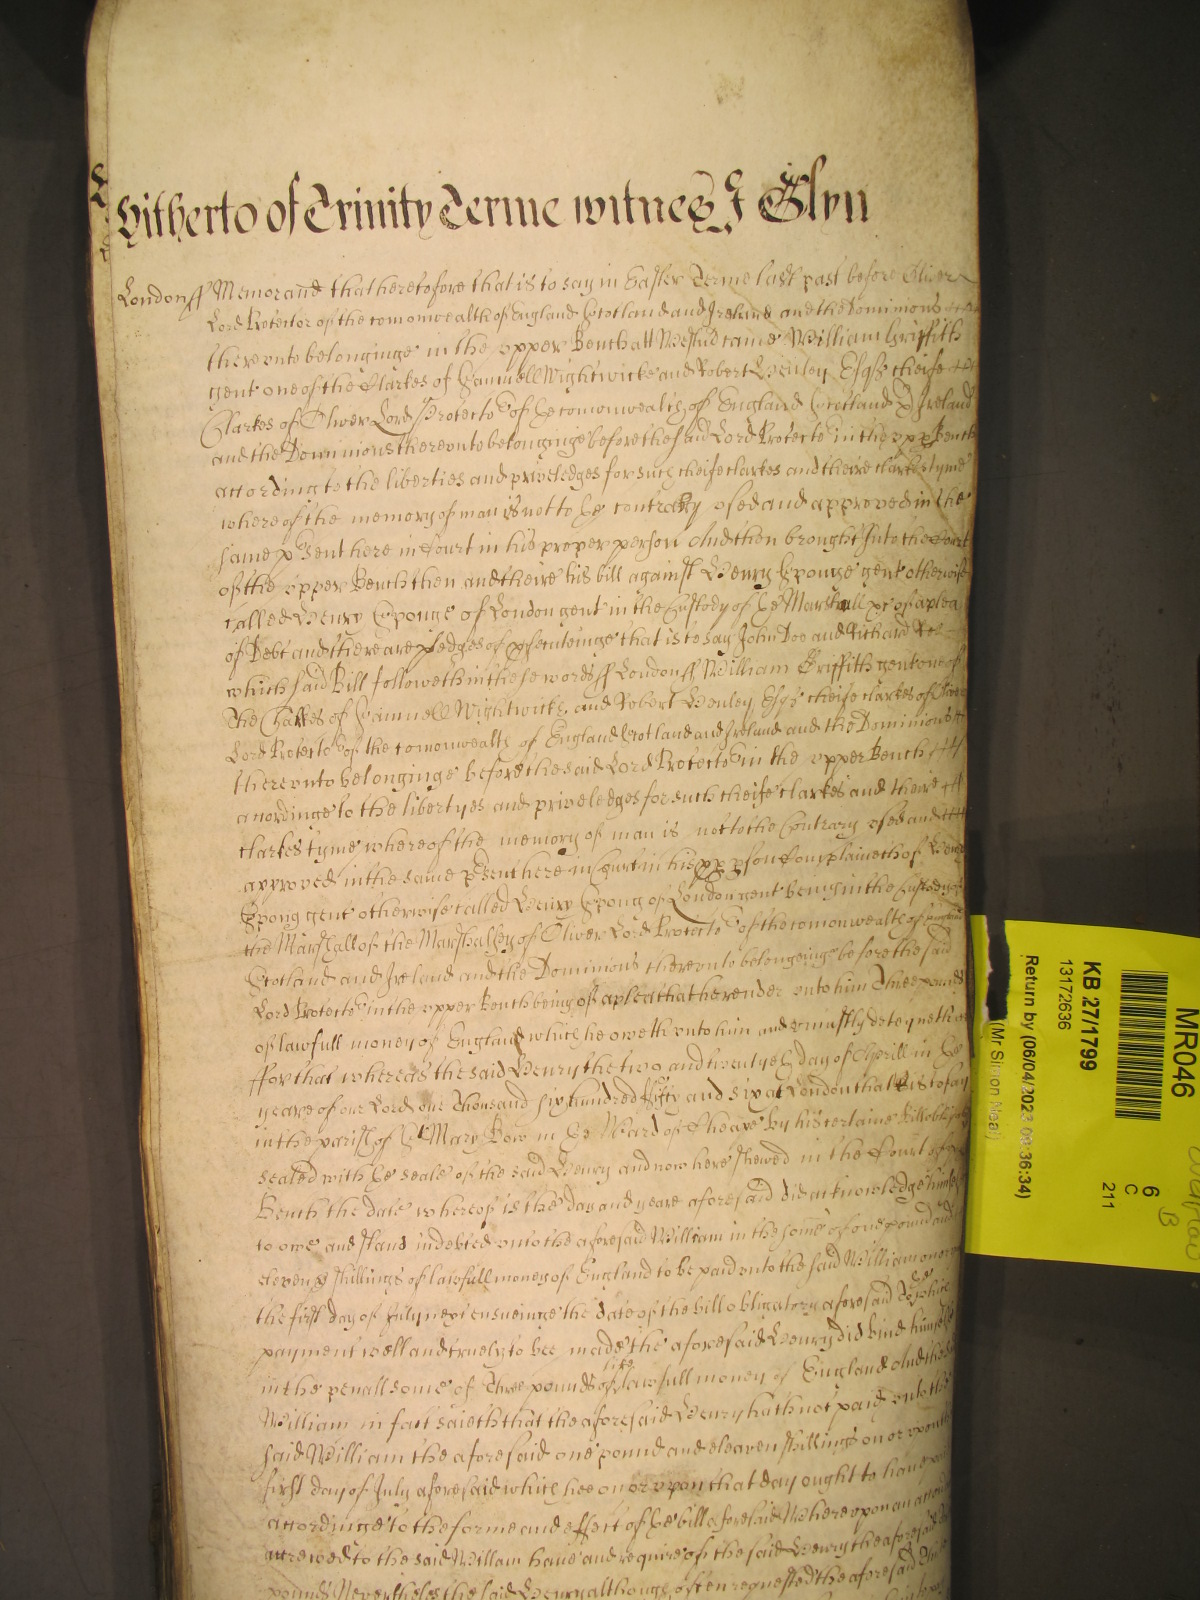 Hitherto of Trinity Terme witnes J Glyn
London ss Memorand that heretofore that is to say in Easter Terme last past before Oliver
Lord Protector of the comonwealth of England Scotland and Ireland and the Dominions
therevnto belonginge in the vpper Bench att Westm̃ came William Griffith
gent one of the Clarkes of Samuell Wightwicke and Robert Henley Esqrs cheife
Clarkes of Oliver Lord Protector of ye comonwealth of England Scotland & Ireland
and the Dominions therevnto belonginge before the said Lord Protector in the vpp Bench
according to the liberties and priveledges for such cheife clarkes and theire clarkes tyme
whereof the memory of man is not to ye contrary vsed and approved in the
same psent here in Court in his proper person And then brought Into the Court
of the vpper Bench then and theire his bill against Henry Sponge gent otherwise
called Henry Sponge of London gent in the Custody of ye Marshall &c of a plea
of Debt and there are pledges of psecuteinge that is to say John Doo and Richard Roo
which said Bill followeth in these words ss London ss William Griffith gent one of
the Clarkes of Samuell Wightwicke and Robert Henley Esqrs cheife clarkes of Oliver
Lord Protector of the comonwealth of England Scotland and Ireland and the Dominions
therevnto belonginge before the said Lord Protector in the vpper Bench
accordinge to the libertyes and priveledges for such cheife clarkes and theire
clarkes tyme whereof the memory of man is not to the Contrary vsed and
approved in the same psent here in Court in his pp pson Complaineth of Henry
Spong gent otherwise called Henry Spong of London gent being in the Custody of
the Marshall of the Marshalsey of Oliver Lord Protector of the comonwealth of England
Scotland and Ireland and the Dominions therevnto belongeinge before the said
Lord Protector in the vpper Bench being of a plea that he render vnto him Three pounds
of lawfull money of England which he oweth vnto him and vniustly deteyneth
ffor that whereas the said Henry the two and twentyeth day of Aprill in ye
yeare of our Lord one Thousand six hundred fifty and six at London that is to say
in the parish of St Mary Bow in ye Ward of Cheape by his certaine bill obligatory
sealed with ye seale of the said Henry and now here shewed in the Court of
Bench the date whereof is the day and yeare aforesaid did acknowledge himselfe
to owe and stand indebted vnto the aforesaid William in the some of one pound and
eleven shillings of lawfull money of England to be paid vnto the said William on or
the first day of July next ensueinge the date of the bill obligatory aforesaid To ye which
payment well and truely to bee made the aforesaid Henry did bind himselfe
in the penall some of Three pounds of like lawfull money of England And the
William in fact saieth that the aforesaid Henry hath not paid vnto the
said William the aforesaid one pound and eleaven shillings on or vpon the
first day of July aforesaid which hee on or vpon that day ought to haue
accordinge to the forme and effect of ye bill aforesaid Wherevpon an
accrewed to the said William haue and require of the said Henry the aforesaid
pounds Neverthelesse the said Henry although often requested the aforesaid
MR046
KB 27/1799
13172636
Return by (06/04/2023 09:36:34)
(Mr Simon Neal)
6
C
211
B